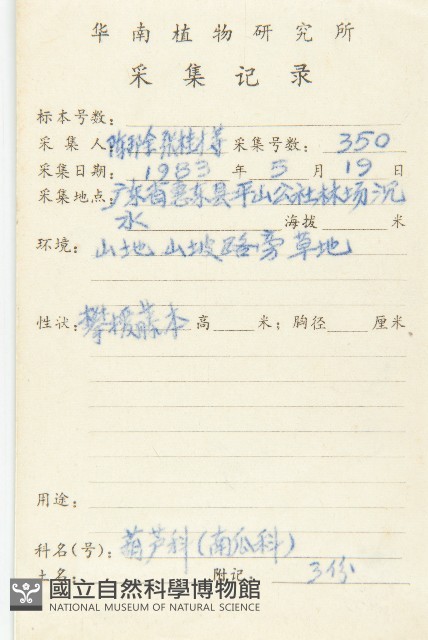 华南植物研究所
采集记录
标本号数:
采集人 采集号数: 350
采集日期: 1983 年 5 月 19 日
采集地点: 广东省惠东县平山公社林场沉
水 海拔 米
环境: 山地 山坡路旁草地
性状: 攀援藤本 高 米; 胸径 厘米
用途:
科名(号): 葫芦科(南瓜科)
土名: 附记: 3份
國立自然科學博物館
NATIONAL MUSEUM OF NATURAL SCIENCE